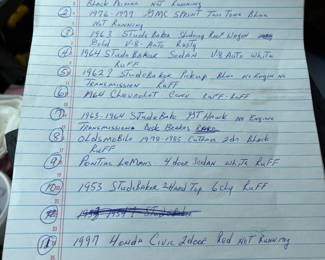 Black Primer Not Running
② 1976-1977 GMC Sprint Two Tone Blue
Not Running
③ 1963 Studebaker Sliding Roof Wagon
Gold V-8-Auto Rusty
④ 1964 Studebaker Sedan V-8 Auto White
Ruff
⑤ 1962? Studebaker Pickup Blue No Engine No
Transmission Ruff
⑥ 1964 Chevrolet Ruff-Ruff
⑦ 1963-1964 Studebaker GT Hawk No Engine
Transmission
⑧ Oldsmobile 1978-1985 Cutlass 2dr Black
Ruff
⑨ Pontiac LeMans 4 door Sedan White Ruff
⑩ 1953 Studebaker 2 Hard Top 6 cly Ruff
Studebaker
1997 Honda Civic 2 door Red Not Running